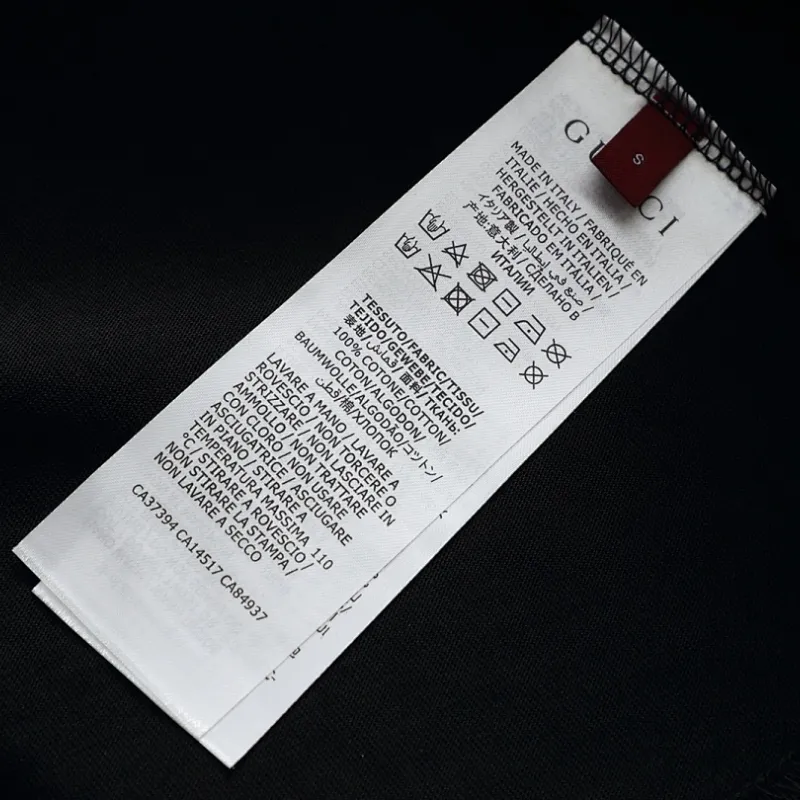 GUCCI
S
MADE IN ITALY / FABRIQUÉ EN
ITALIE / HECHO EN ITALIA /
HERGESTELLT IN ITALIEN /
FABRICADO EM ITÁLIA /
イタリア製 / صنع في إيطاليا /
产地:意大利 / СДЕЛАНО В
ИТАЛИИ
TESSUTO/FABRIC/TISSU/
TEJIDO/GEWEBE/TECIDO/
表地/قماش/面料/ТКАНЬ:
100% COTONE/COTTON/
COTON/ALGODON/
BAUMWOLLE/ALGODÃO/コットン/
قطن/棉/ХЛОПОК
LAVARE A MANO / LAVARE A
ROVESCIO / NON TORCERE O
STRIZZARE / NON LASCIARE IN
AMMOLLO / NON TRATTARE
CON CLORO / NON USARE
ASCIUGATRICE / ASCIUGARE
IN PIANO / STIRARE A
TEMPERATURA MASSIMA 110
°C / STIRARE A ROVESCIO /
NON STIRARE LA STAMPA /
NON LAVARE A SECCO
CA37394 CA14517 CA84937